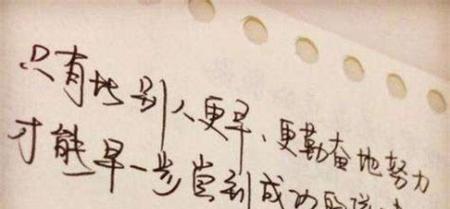 只有比别人更早、更勤奋地努力
才能早一步尝到成功的滋